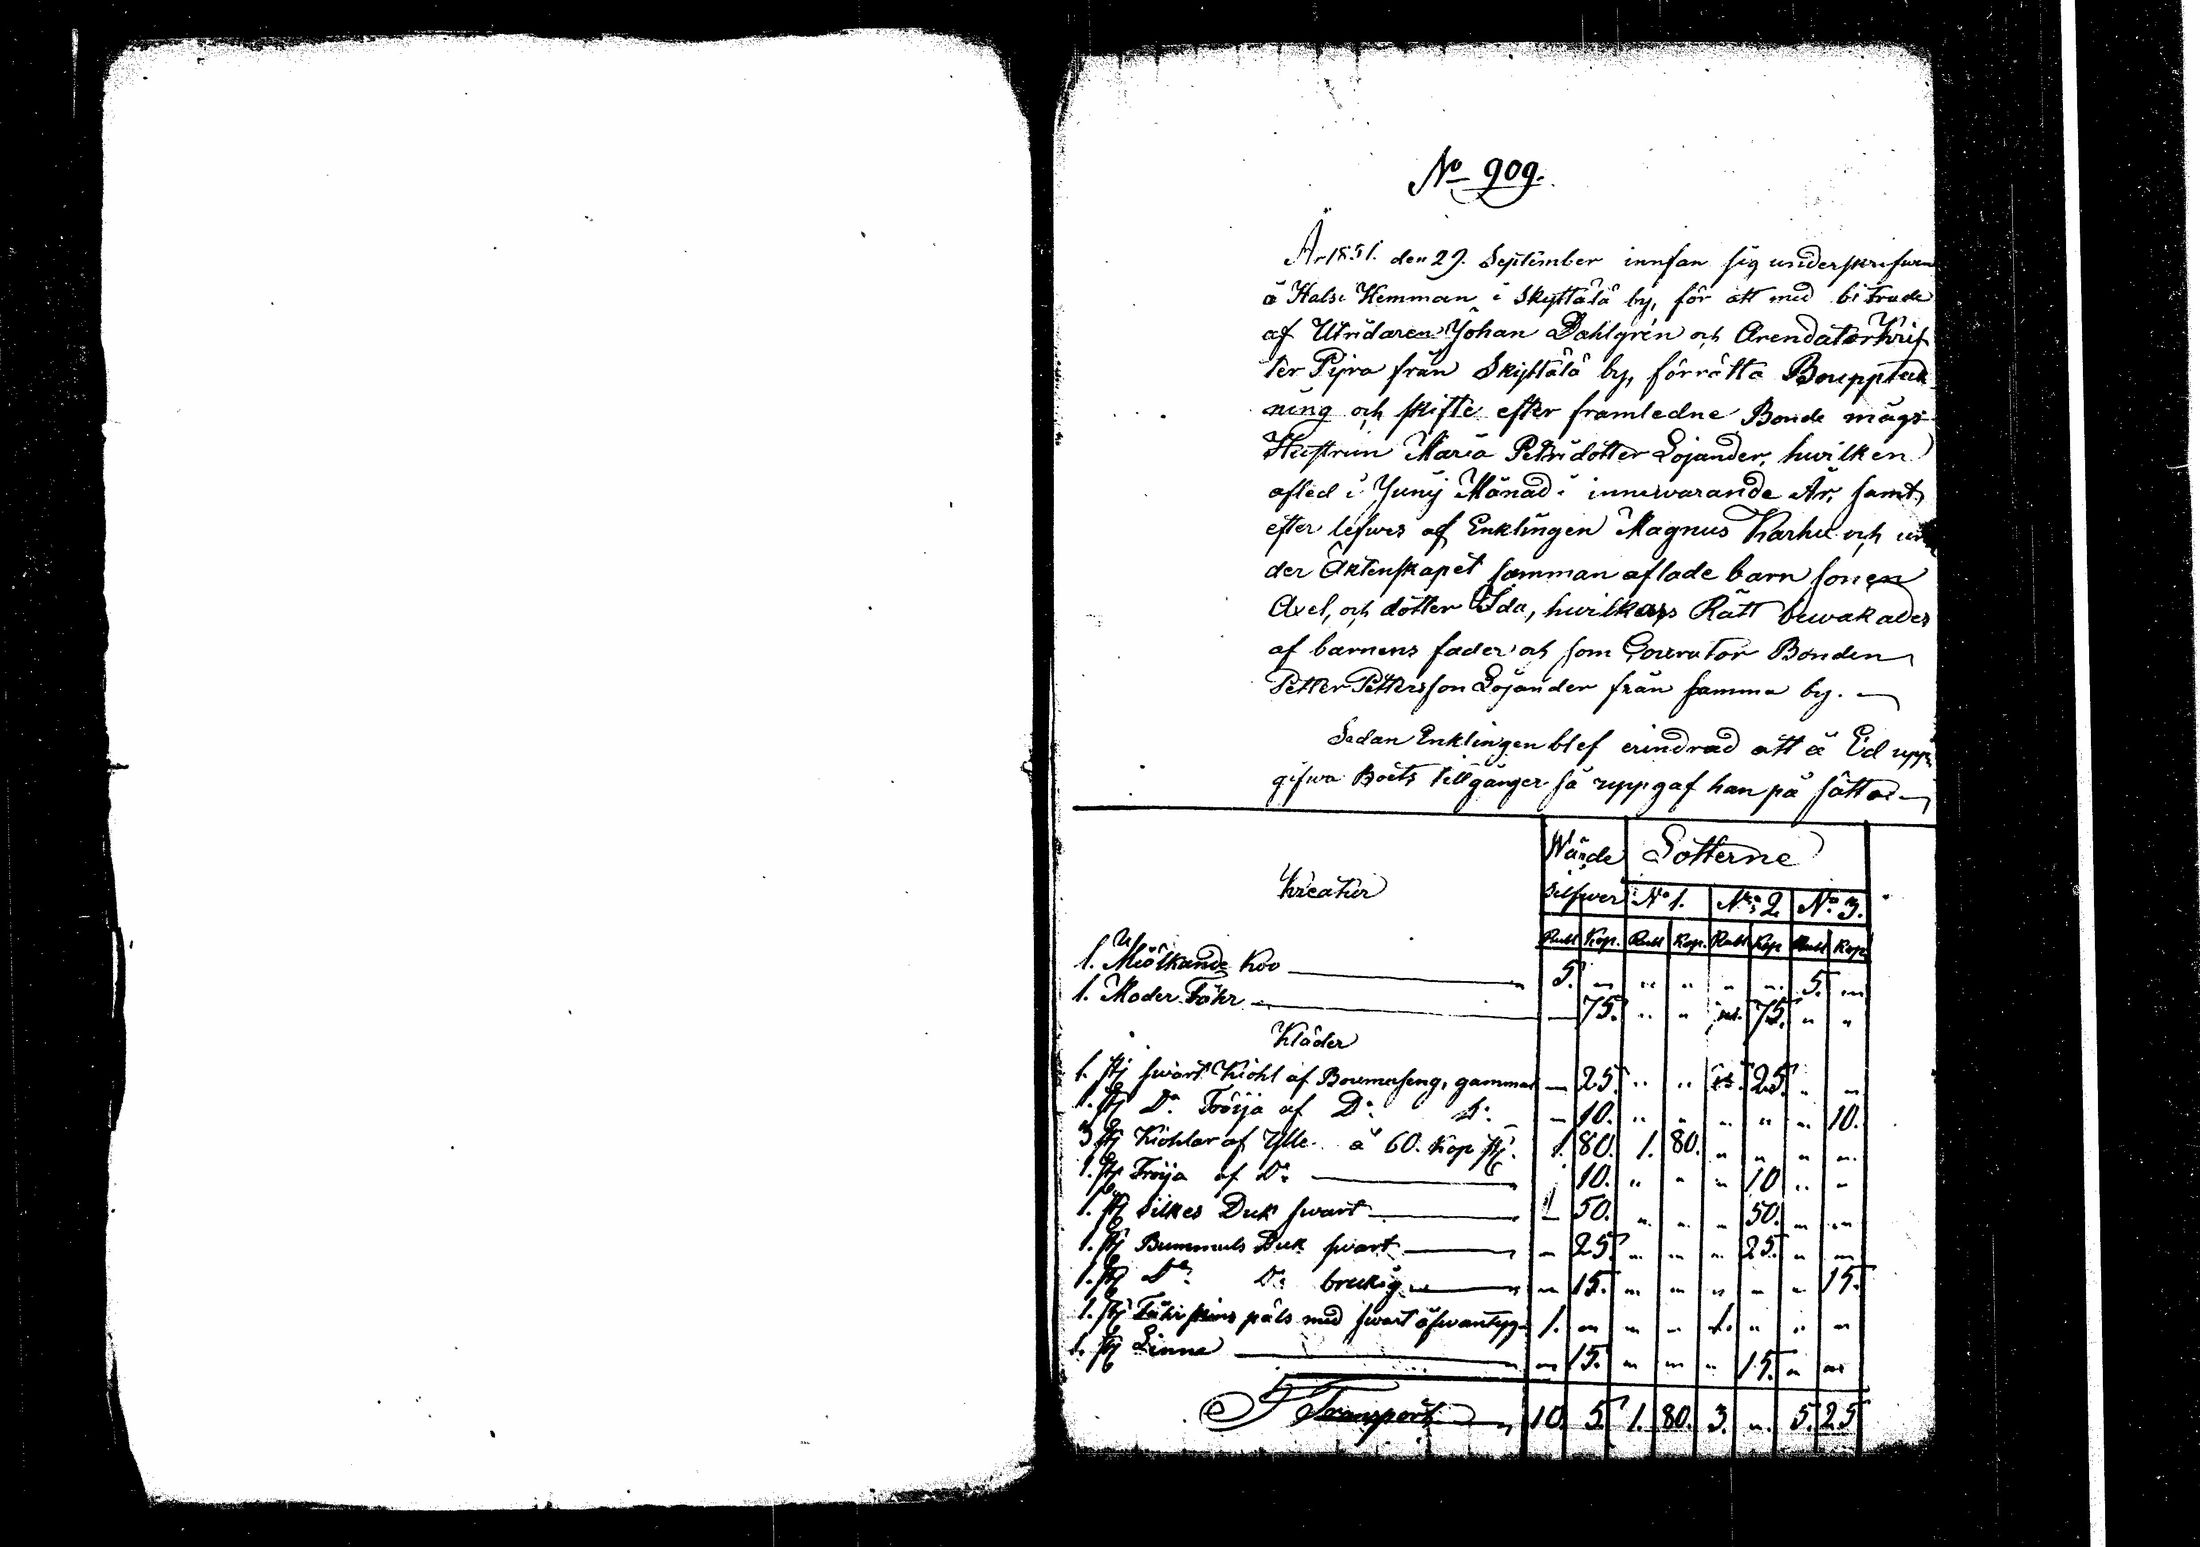 No 909.
År 1851. den 29. September innfan sig underskrifwen
å Halsi Hemman i Skyttälä by, för att med biträde
af Utridaren Johan Dahlgrén och Arendator Krist
ter Pijra från Skyttälä by, förrätta Boupptek
ning och skifte efter framledne Bonde mågs
Hustrun Maria Petri dotter Lojander, hwilken
afled i Junij Månad i innewarande År, samt
efter lefwes af Enklingen Magnus Karhu och un
der Äktenskapet samman aflade barn sonen
Axel, och dotter Ida, hwilkas Rätt bewakades
af barnens fader och som Gouvator Bonden
Petter Pettersson Lojander från samma by. —
Sedan Enklingen blef erindrad att å Ed upp
gifwa Boets tillgånger så uppgaf han på sätt —
Kreatur Wärde Silfwer Lotterne
No 1. No 2. No 3.
Rubl Kop. Rubl Kop. Rubl Kop Rubl Kop
1. Miölkande Koo — 5. " " " " " 5. "
1. Moder Fåhr — — 75. " " " 75. " "
Kläder
1. st swart Kiohl af Boumuseng, gammal — 25. " " " 25. " "
1. st Do Tröija af Do Do — 10. " " " " " 10.
3 st Kiohlar af Ylle à 60. Kop st. 1. 80. 1. 80. " " " "
1. st Tröija af Do — 10. " " " 10 " "
1. st Silkes Duk swart — 50. " " " 50. " "
1. st Bummuls Duk swart — 25. " " " 25. " "
1. st Do Do brukig — 15. " " " " " 15.
1. st Fåhrskins päls med swart åfwantyg 1. " " " 1. " " "
1. st Linne — 15. " " " 15. " "
Transport 10. 5. 1. 80. 3. " 5. 25